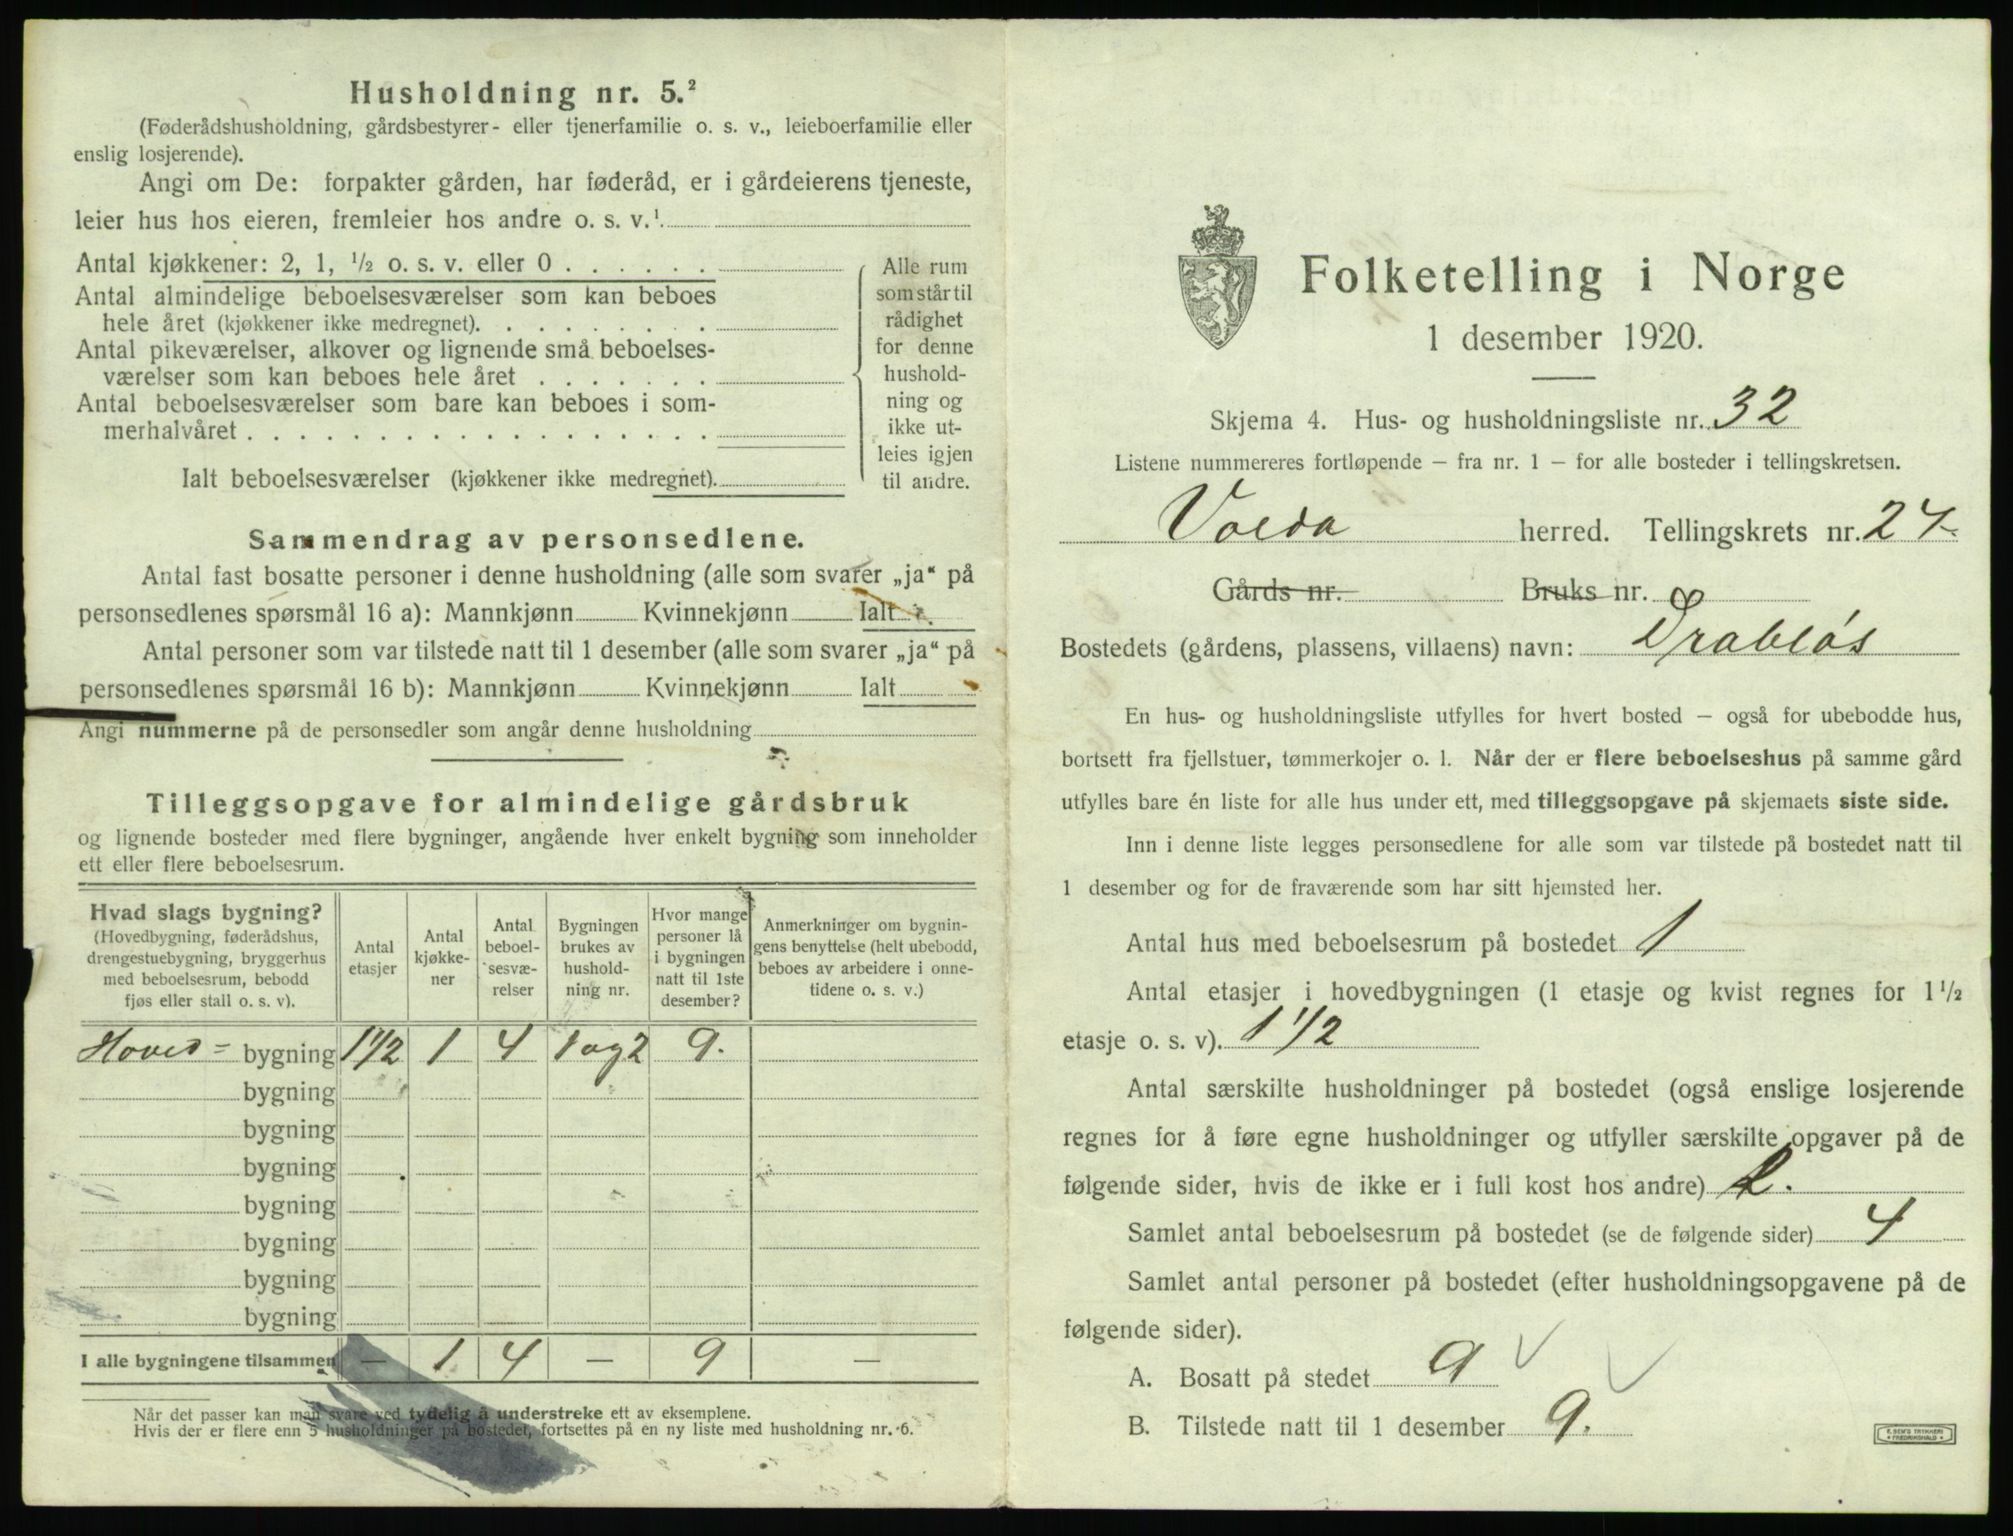 Husholdning nr. 5.²
(Føderådshusholdning, gårdsbestyrer- eller tjenerfamilie o. s. v., leieboerfamilie eller
enslig losjerende).
Angi om De: forpakter gården, har føderåd, er i gårdeierens tjeneste,
leier hus hos eieren, fremleier hos andre o. s. v.¹
Antal kjøkkener: 2, 1, ½ o. s. v. eller 0 . . . . . .
Antal almindelige beboelsesværelser som kan beboes
hele året (kjøkkener ikke medregnet). . . . . . . . .
Antal pikeværelser, alkover og lignende små beboelses-
værelser som kan beboes hele året . . . . . . .
Antal beboelsesværelser som bare kan beboes i som-
merhalvåret . . . . . . . . . . . . . . . . . .
Alle rum
som står til
rådighet
for denne
hushold-
ning og
ikke ut-
leies igjen
til andre.
Ialt beboelsesværelser (kjøkkener ikke medregnet).
Sammendrag av personsedlene.
Antal fast bosatte personer i denne husholdning (alle som svarer „ja“ på
personsedlenes spørsmål 16 a): Mannkjønn Kvinnekjønn Ialt
Antal personer som var tilstede natt til 1 desember (alle som svarer „ja“ på
personsedlenes spørsmål 16 b): Mannkjønn Kvinnekjønn Ialt
Angi nummerne på de personsedler som angår denne husholdning
Tilleggsopgave for almindelige gårdsbruk
og lignende bosteder med flere bygninger, angående hver enkelt bygning som inneholder
ett eller flere beboelsesrum.
Hvad slags bygning?
(Hovedbygning, føderådshus,
drengestuebygning, bryggerhus
med beboelsesrum, bebodd
fjøs eller stall o. s. v).
Antal
etasjer
Antal
kjøkke-
ner
Antal
beboel-
sesvæ-
relser
Bygningen
brukes av
hushold-
ning nr.
Hvor mange
personer lå
i bygningen
natt til 1ste
desember?
Anmerkninger om bygnin-
gens benyttelse (helt ubebodd,
beboes av arbeidere i onne-
tidene o. s. v.)
Hoved= bygning 1½ 1 4 1 og 2 9.
bygning
bygning
bygning
bygning
bygning
bygning
bygning
I alle bygningene tilsammen — 1 4 — 9 —
Når det passer kan man svare ved tydelig å understreke ett av eksemplene.
Hvis der er flere enn 5 husholdninger på bostedet, fortsettes på en ny liste med husholdning nr. 6.
Folketelling i Norge
1 desember 1920.
Skjema 4. Hus- og husholdningsliste nr. 32
Listene nummereres fortløpende – fra nr. 1 – for alle bosteder i tellingskretsen.
Volda herred. Tellingskrets nr. 24
Gårds nr. Bruks nr.
Bostedets (gårdens, plassens, villaens) navn: Drabløs
En hus- og husholdningsliste utfylles for hvert bosted – også for ubebodde hus,
bortsett fra fjellstuer, tømmerkojer o. l. Når der er flere beboelseshus på samme gård
utfylles bare én liste for alle hus under ett, med tilleggsopgave på skjemaets siste side.
Inn i denne liste legges personsedlene for alle som var tilstede på bostedet natt til
1 desember og for de fraværende som har sitt hjemsted her.
Antal hus med beboelsesrum på bostedet 1
Antal etasjer i hovedbygningen (1 etasje og kvist regnes for 1½
etasje o. s. v). 1½
Antal særskilte husholdninger på bostedet (også enslige losjerende
regnes for å føre egne husholdninger og utfyller særskilte opgaver på de
følgende sider, hvis de ikke er i full kost hos andre) 2.
Samlet antal beboelsesrum på bostedet (se de følgende sider) 4
Samlet antal personer på bostedet (efter husholdningsopgavene på de
følgende sider).
A. Bosatt på stedet 9
B. Tilstede natt til 1 desember 9.
E. SEM'S TRYKKERI
FREDRIKSHALD